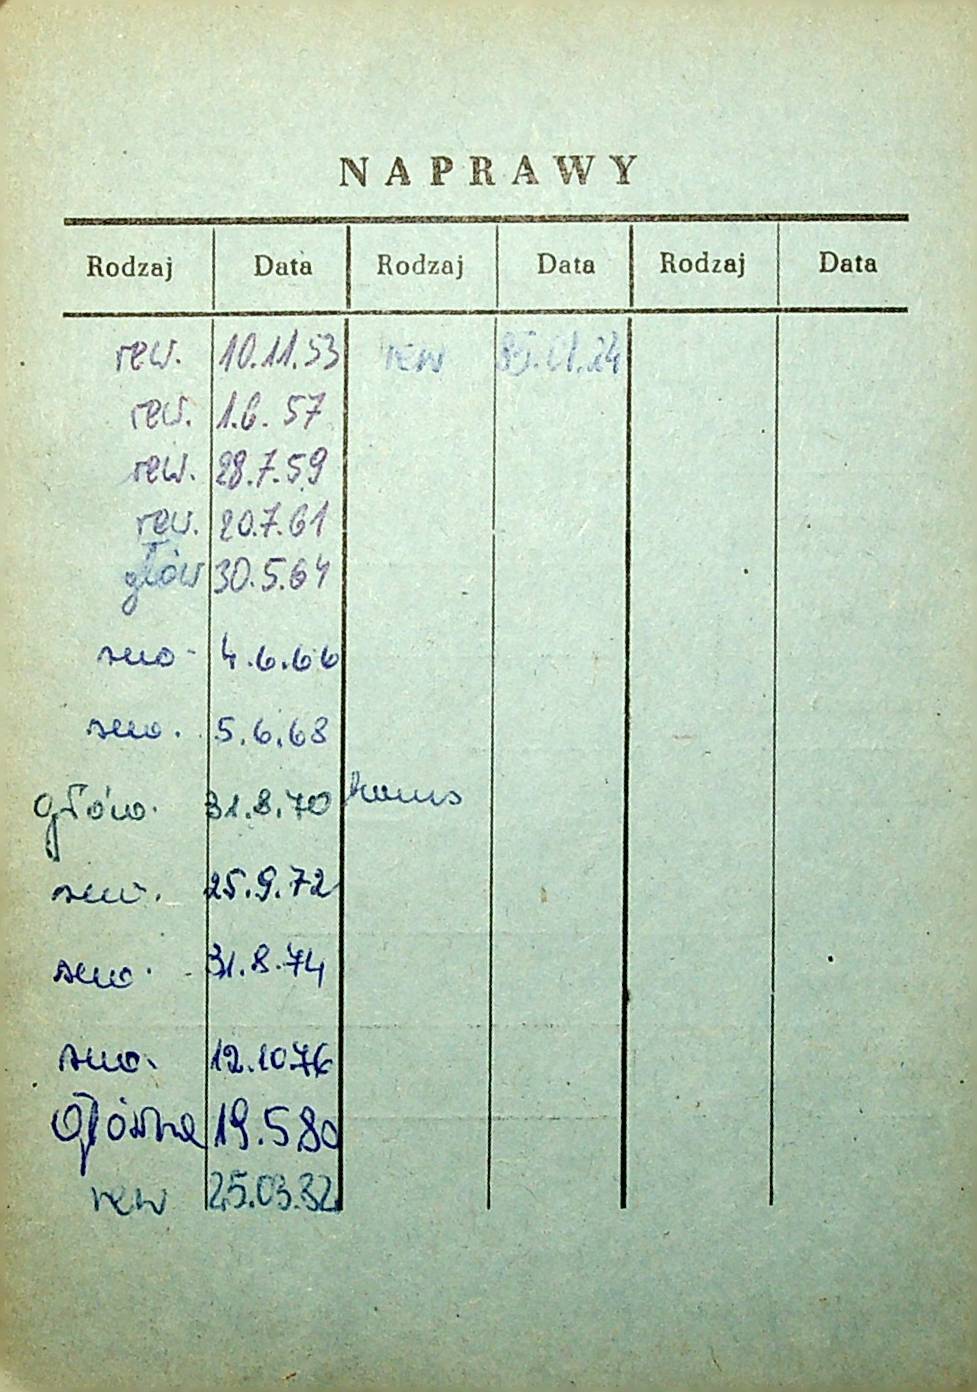 NAPRAWY
Rodzaj Data Rodzaj Data Rodzaj Data
rew. 10.11.53 rew 85.01.24
rew. 1.6.57
rew. 28.7.59
rew. 20.7.61
głów 30.5.64
4.6.66
5.6.68
głów. 31.8.70
25.9.72
31.8.74
12.10.76
Główna 19.5.80
rew 25.03.82